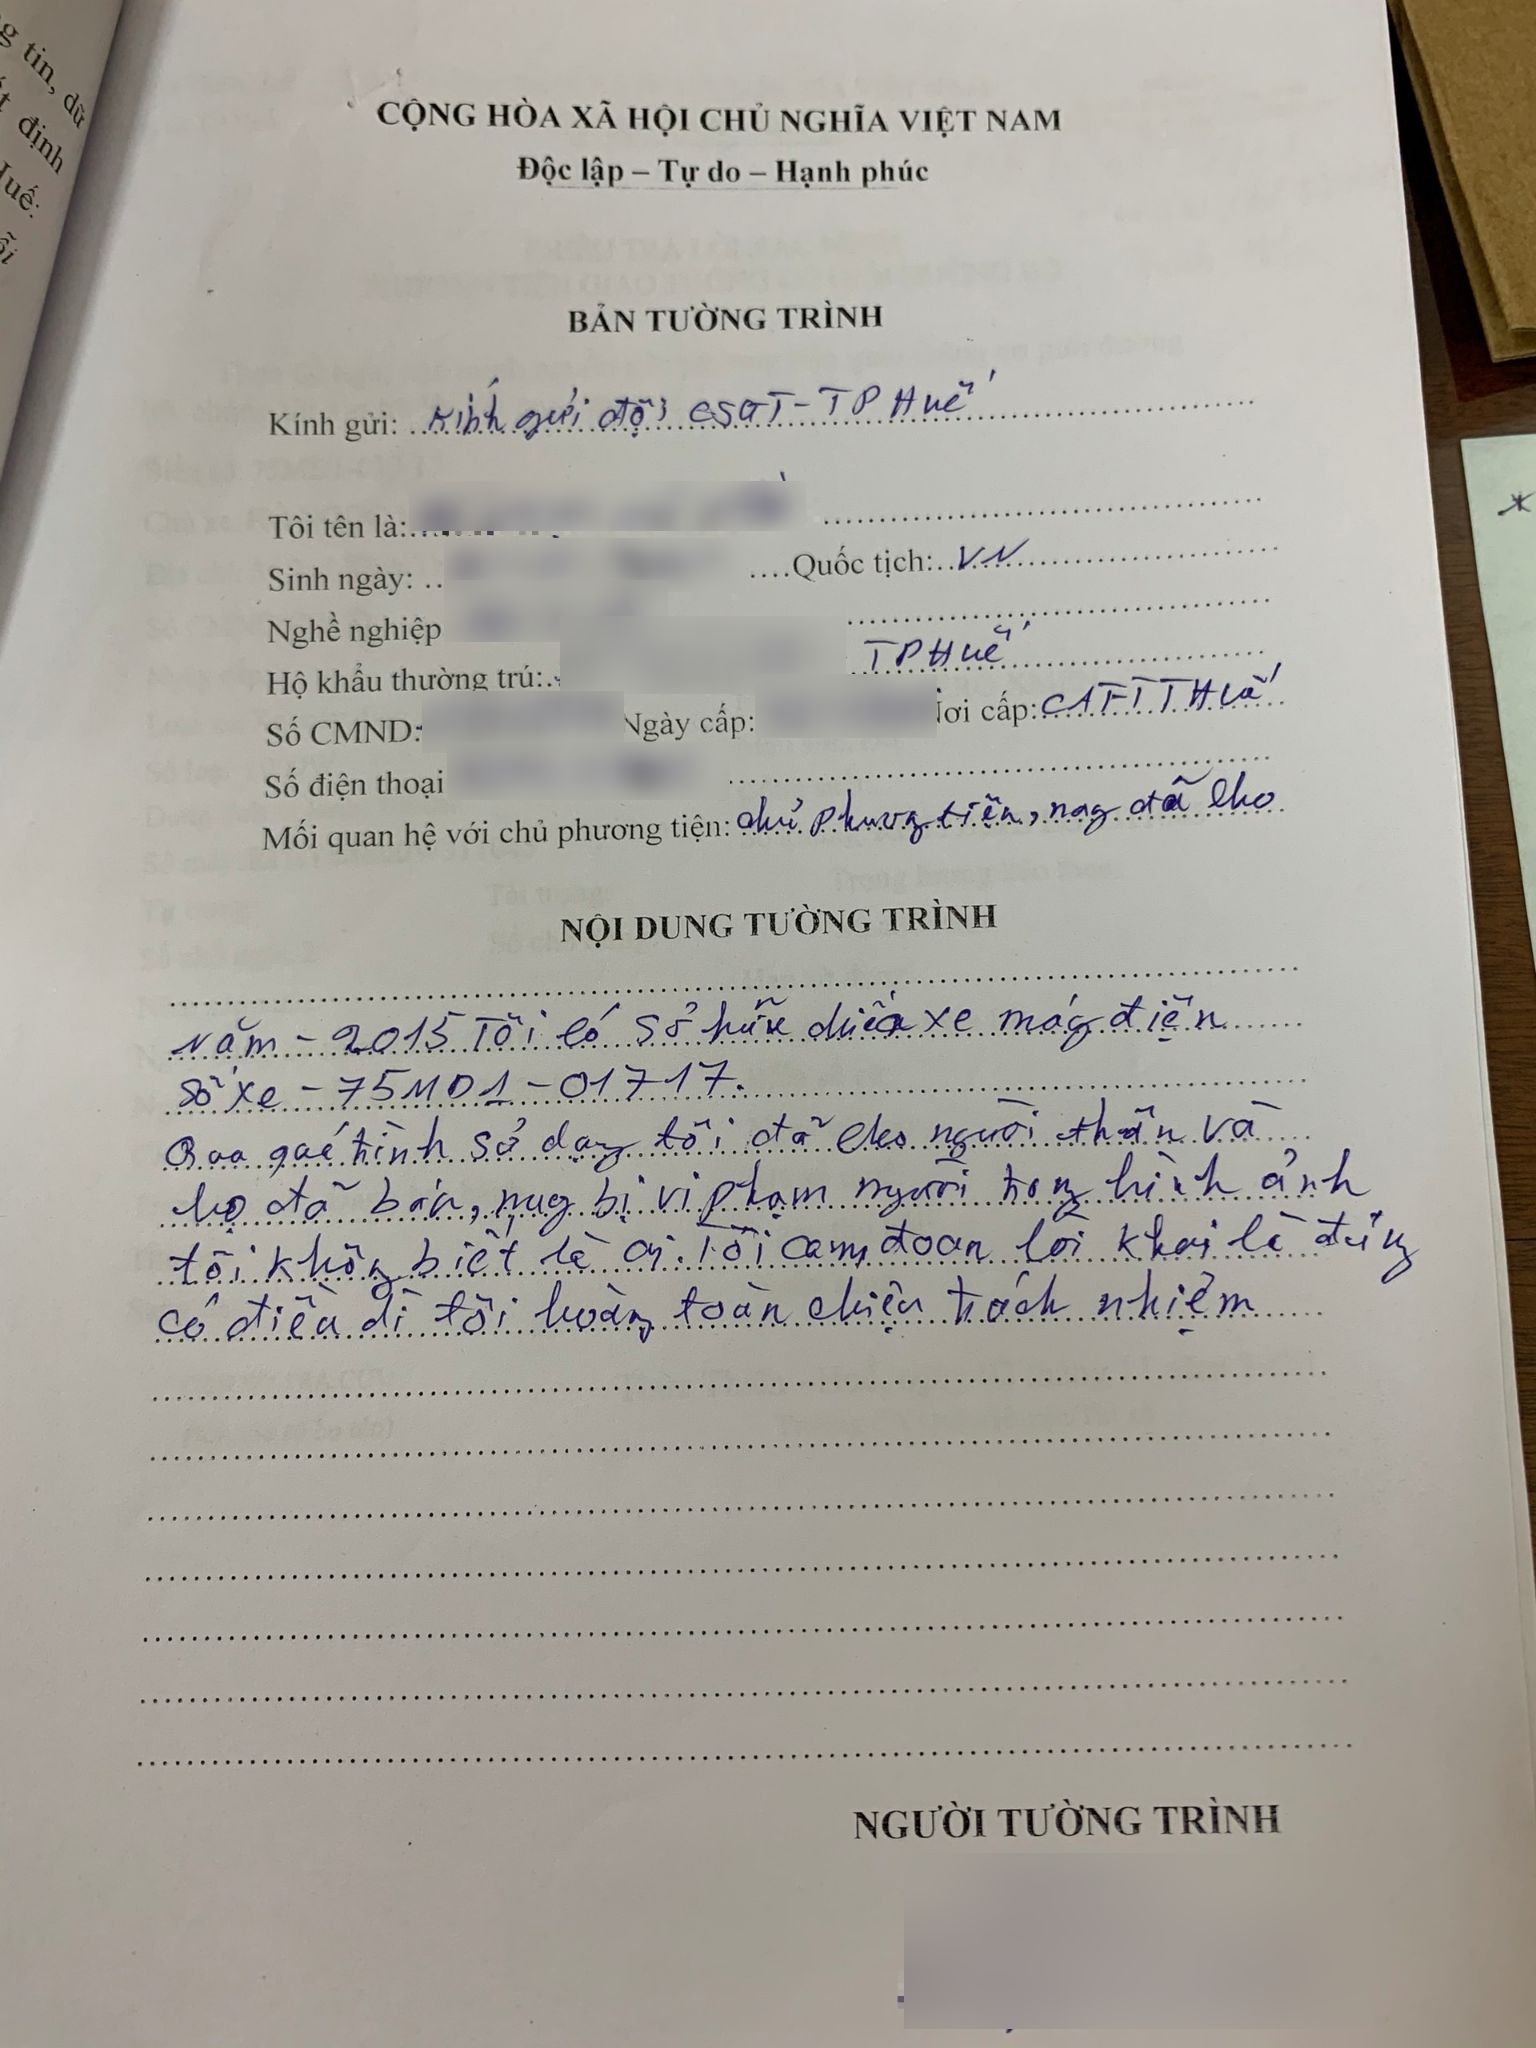 g tin, dữ
t định
Huế:
ỗi
CỘNG HÒA XÃ HỘI CHỦ NGHĨA VIỆT NAM
Độc lập – Tự do – Hạnh phúc
BẢN TƯỜNG TRÌNH
Kính gửi: Kính gửi đội CSGT - TP Huế
Tôi tên là:
Sinh ngày: Quốc tịch: VN
Nghề nghiệp
Hộ khẩu thường trú: TP Huế
Số CMND: Ngày cấp: Nơi cấp: CATTTHuế
Số điện thoại
Mối quan hệ với chủ phương tiện: chủ phương tiện, nay đã cho
NỘI DUNG TƯỜNG TRÌNH
Năm - 2015 Tôi có sở hữu chiếc xe máy điện
Số xe - 75MD1 - 01717.
Qua quá tình sử dụng tôi đã cho người thân và
họ đã bán, nay bị vi phạm người trong hình ảnh
tôi không biết là ai. Tôi cam đoan lời khai là đúng
có điều dì tôi hoàn toàn chiệu trách nhiệm
NGƯỜI TƯỜNG TRÌNH